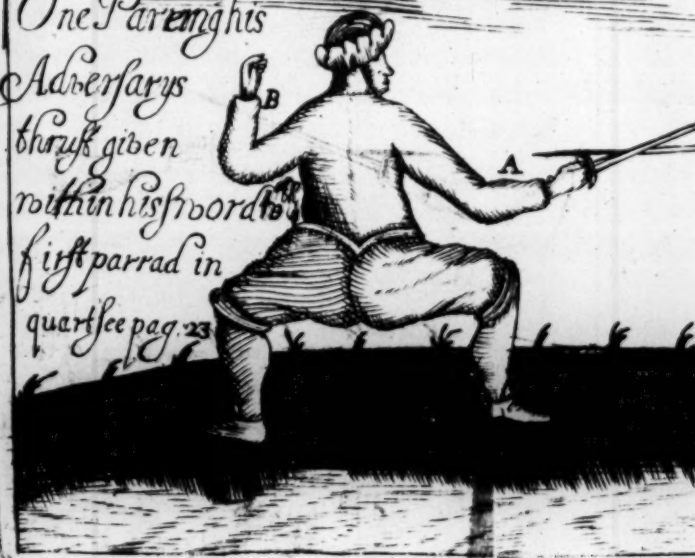 One Pareing his
Adversarys
thrust given
within his sword to the
first parrad in
quart see pag. 23
B
A